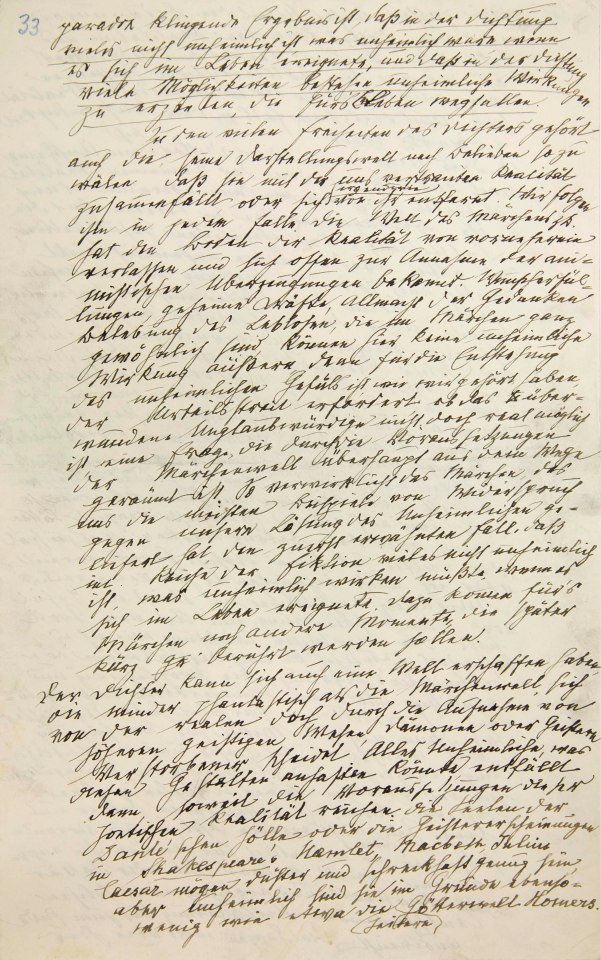 33
paradox klingende Ergebnis ist, daß in der Dichtung
vieles nicht unheimlich ist, was unheimlich wäre, wenn
es sich im Leben ereignete, und daß in der Dichtung
viele Möglichkeiten bestehen, unheimliche Wirkungen
zu erzielen, die fürs Leben wegfallen.
Zu den vielen Freiheiten des Dichters gehört
auch die, seine Darstellungswelt nach Belieben so zu
wälen, daß sie mit der uns vertrauten Realität
zusammenfällt oder sich irgendwie von ihr entfernt. Wir folgen
ihm in jedem Falle. Die Welt des Märchens
hat den Boden der Realität von vorneherein
verlassen und sich offen zur Annahme der ani-
mistischen Überzeugungen bekennt. Wunscherfül-
lungen, geheime Kräfte, Allmacht der Gedanken
Belebung des Leblosen, die im Märchen ganz
gewöhnlich sind, können hier keine unheimliche
Wirkung äußern, denn für die Entstehung
des unheimlichen Gefüls ist wie wir gehört haben,
der Urteilsstreit erfordert, ob das über-
wundene Unglaubwürdige nicht doch real möglich
ist, eine Frage, die durch die Voraussetzungen
der Märchenwelt überhaupt aus dem Wege
geräumt ist. So verwirklicht das Märchen, das
uns die meisten Beispiele von Widerspruch
gegen unsere Lösung des Unheimlichen ge-
liefert hat, den zuerst erwähnten Fall, daß
im Reiche der Fiktion vieles nicht unheimlich
ist, was unheimlich wirken müßte, wenn es
sich im Leben ereignete. Dazu komen fürs
Märchen noch andere Momente, die später
kurz berührt werden sollen.
Der Dichter kann sich auch eine Welt erschaffen haben,
die minder phantastisch als die Märchenwelt, sich
von der realen doch durch die Aufnahme von
höheren geistigen Wesen, Dämonen oder Geistern
Verstorbener scheidet. Alles Unheimliche, was
diesen Gestalten anhaften könnte, entfällt
dann, soweit die Voraussetzungen dieser
poetischen Realität reichen. Die Seelen der
Danteschen Hölle oder die Geistererscheinungen
in Shakespeares Hamlet, Macbeth, Julius
Caesar mögen düster und schreckhaft genug sein,
aber unheimlich sind sie im Grunde ebenso-
wenig wie etwa die Götterwelt Homers.
heitere